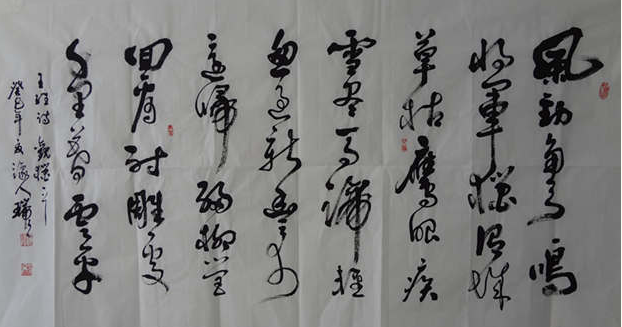 風勁角弓鳴
將軍獵渭城
草枯鷹眼疾
雪盡馬蹄輕
忽過新豐市
還歸細柳營
回看射雕處
千里暮雲平
王维诗觀獵
癸巳年